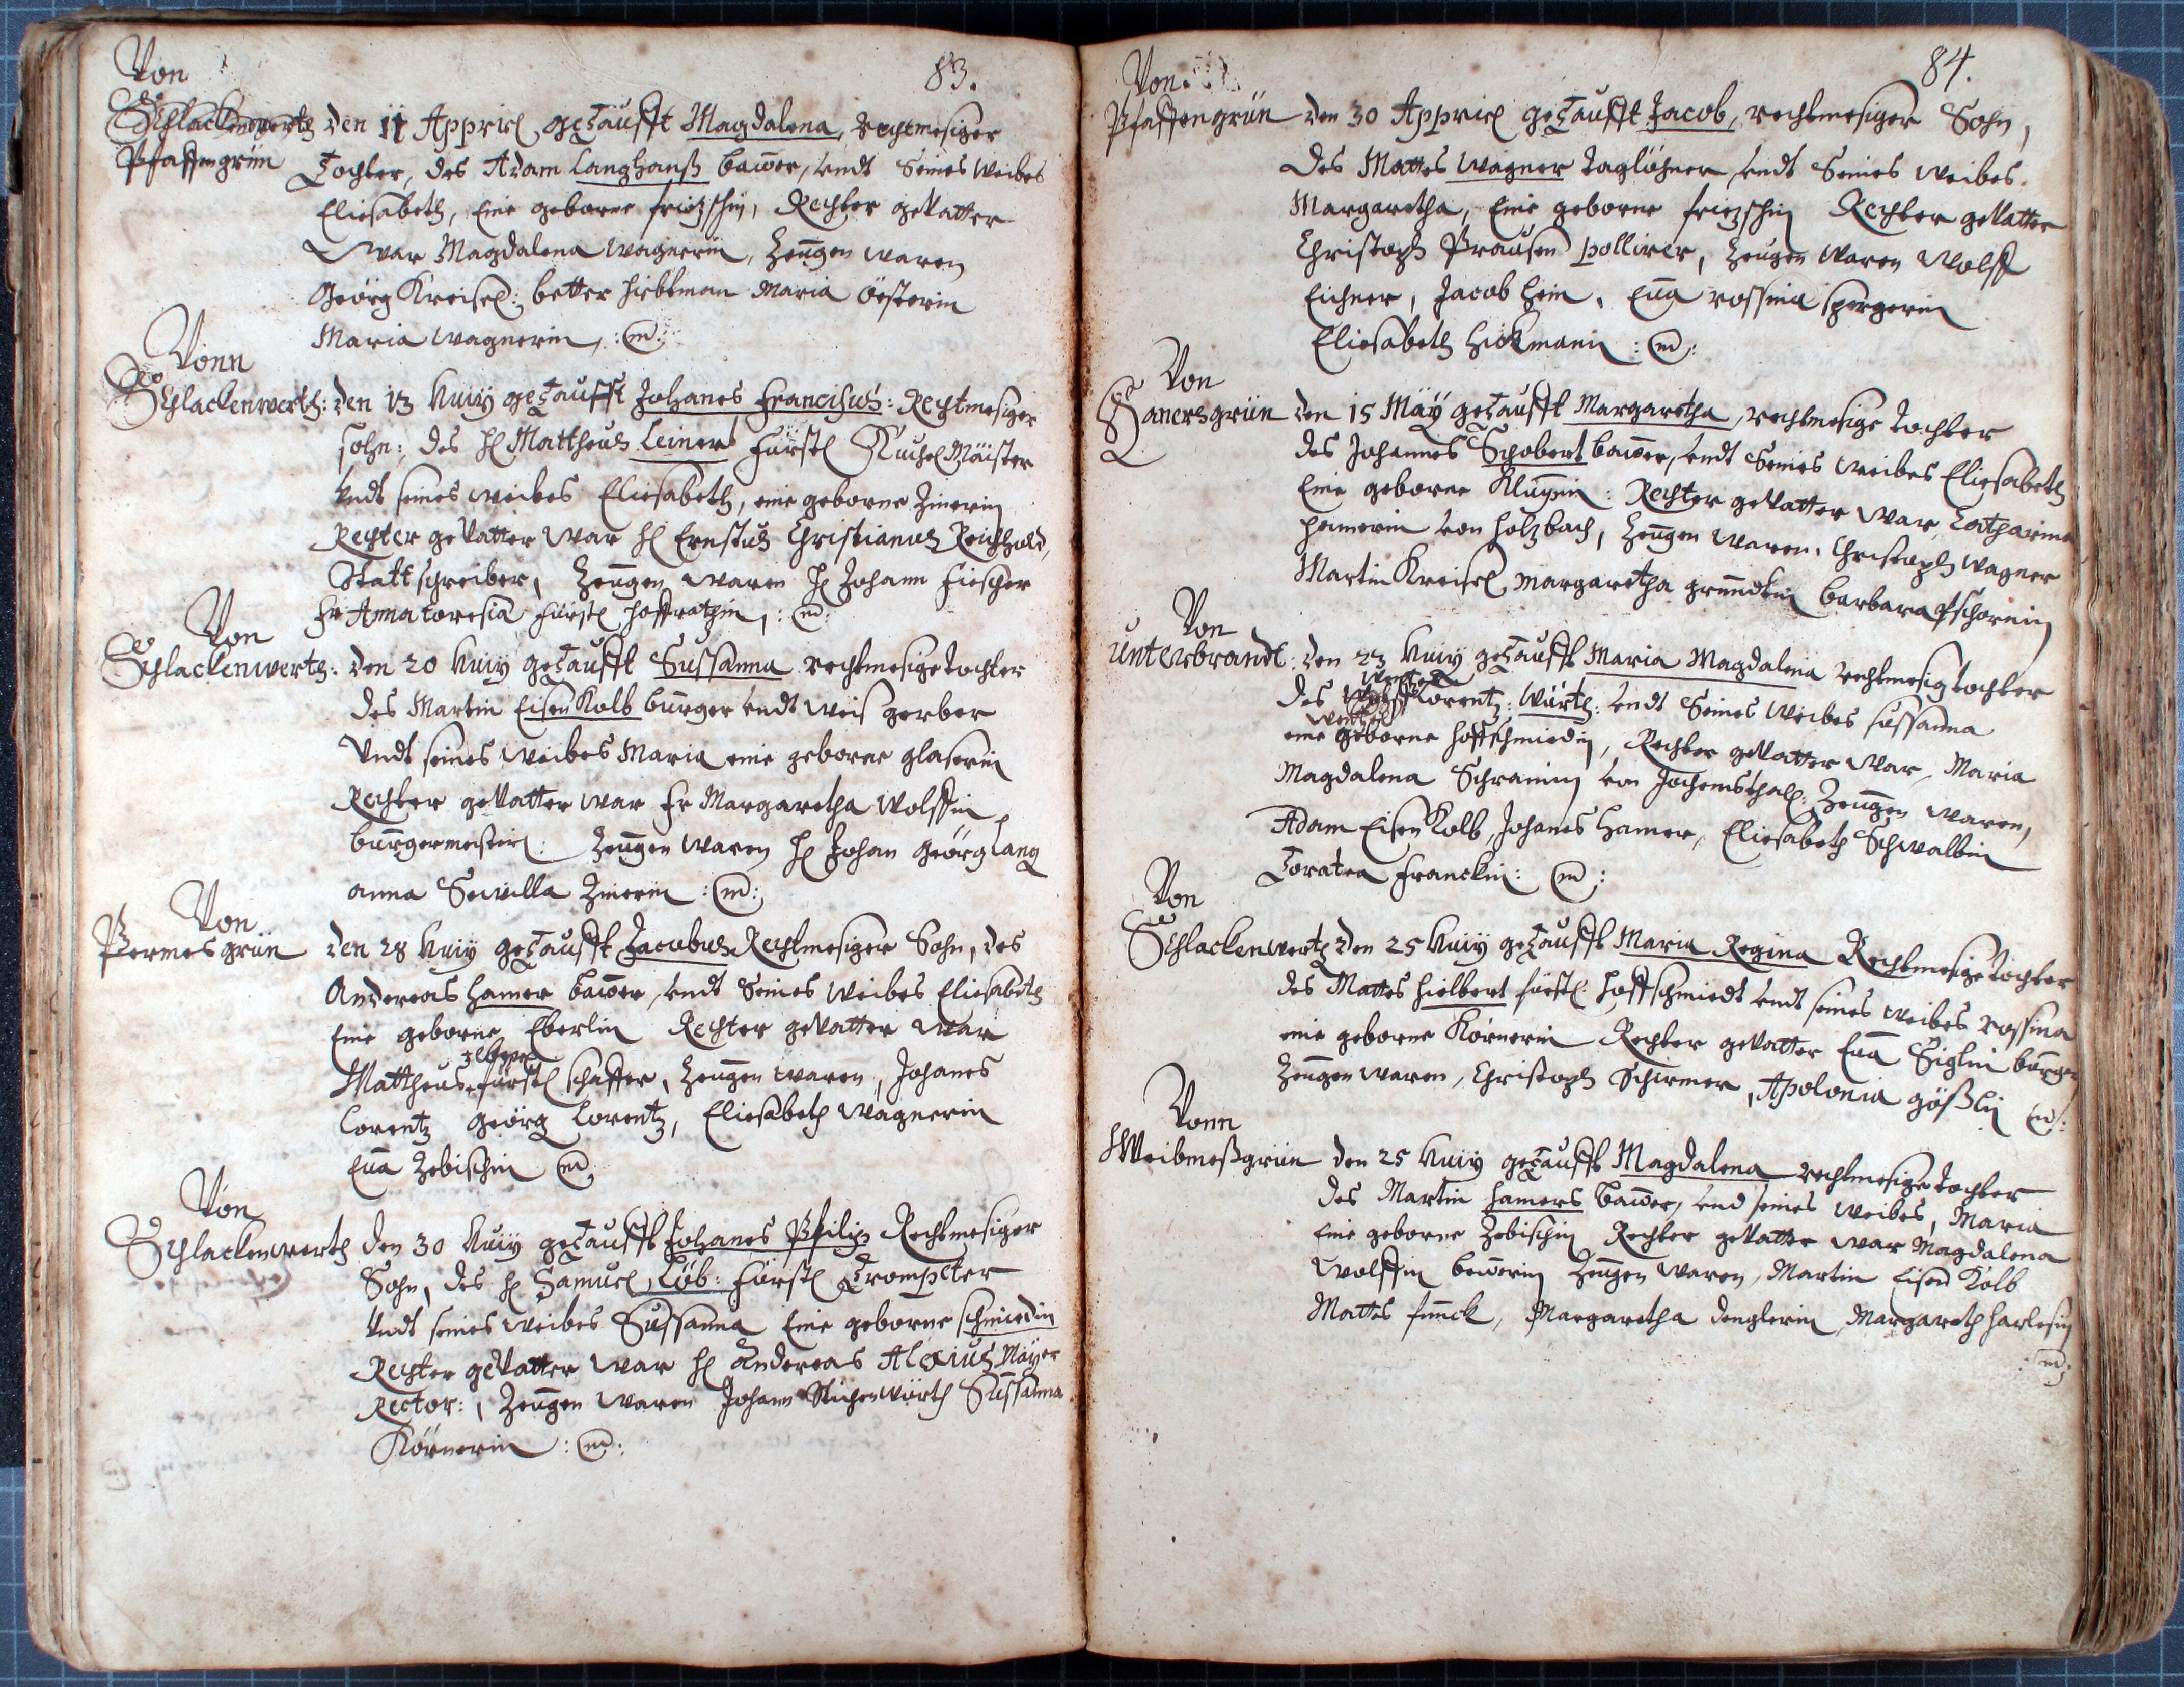 83.
Von
Schlackenwerth
Pfaffengrün
den 11 Appriel getaufft Magdalena, Rechtmesiger
Tochter, des Adam Langhanß bawer, undt Seines Weibes
Eliesabeth, Eine geborne frietzschin, Rechter gevatter
War Magdalena Wagnerin, Zeugen waren
Geörg Kreisel: better Maria Öesterin
Maria Wagnerin, :m:
Vonn
Schlackenwerth: den 13 huiy getaufft Johanes Francischus: Rechtmesiger
sohn: des H Mattheus Leinert Fürstl KuchelMäister
Undt seines weibes Eliesabeth, eine geborne Zinerin
Rechter gevatter war H Ernstus Christianus Reichhold,
Statt schreiber, Zeugen waren H Johann Fiescher
Fr Anna toresia Fürstl hoffrathin, :m:
Von
Schlackenwerth: den 20 huiy getaufft Sussanna rechtmesige tochter
des Martin Eisen Kolb burger undt weis gerber
Undt seines weibes Maria eine geborne glaserin
Rechter gevatter war Fr Margaretha Wolffin
burgermeisterin: Zeugen waren H Johan Geörg Lang
anna Sewilla Zinerin :m:
Von
Permesgrün den 28 huiy getaufft Jacobus Rechtmesiger Sohn, des
Andereas Hamer bawer, undt Seines Weibes Eliesabeth
Eine geborne Eberlin Rechter gevatter war
Mattheus fürstl schaffer, Zeugen waren, Johanes
Lorentz Geörg Lorentz, Eliesabeth Wagnerin
Eua Zebischin m
Von
Schlackenwerth den 30 huiy getaufft Johanes Philip Rechtmesiger
Sohn, des H Samuel Löb: Fürstl Trompeter
Undt seines weibes Sussanna Eine geborne schmiedin
Rechter gevatter war H Andereas Alexius Mayer
Rector:, Zeugen waren Johann Sussanna
Körnerin :m:
84.
Von
Pfaffengrün den 30 Appriel getaufft Jacob, rechtmesiger Sohn,
des Mattes Wagner taglöhner undt Seines weibes
Margaretha, Eine geborne frietzschin Rechter gevatter
Christoph Prausen pollirer, Zeugen waren Wolff
Eichner, Jacob Hein, Eua rossina spergerin
Eliesabeth Hickmanin :m:
Von
Hanersgrün den 15 May getaufft Margaretha, rechtmesige tochter
des Johannes Schobert bawer, undt Seines weibes Eliesabeth
Eine geborne Klugin: Rechter gevatter war Catharina
hamerin von Holzbach, Zeugen waren, Christoph Wagner
Martin Kreisel Margaretha gründtin barbara Pschornin
Von
Unterbrandt: den 23 huiy getaufft Maria Magdalena rechtmesig tochter
Wentzel
des Lorentz: Würth: undt Seines Weibes sussanna
eine geborne hoffschmiedin, Rechter gevatter war, Maria
Magdalena Schramin von Jochemsthall: Zeugen waren,
Adam Eisen Kolb, Johanes Hamer, Eliesabeth Schwalbin
Toratea Franckin: m:
Von
Schlackenwerth den 25 huiy getaufft Maria Regina Rechtmesige tochter
des Mattes Hielbert fürstl: Hoffschmiedt undt seines weibes Rossina
eine geborne Körnerin Rechter gevatter Eua Siglin burger
Zeugen waren, Christoph Schirmer, Apolonia gößlin m:
Vonn
Weibmeßgrün den 25 huiy getaufft Magdalena rechtmesige tochter
des Martin Hamers bawer, und seines weibes, Maria
Eine geborne Zebischin Rechter gevatter war Magdalena
Wolffin bewerin Zeugen waren, Martin Eisen Kolb
Mattes funck, Margaretha denglerin, Margareth harlesin
:m: